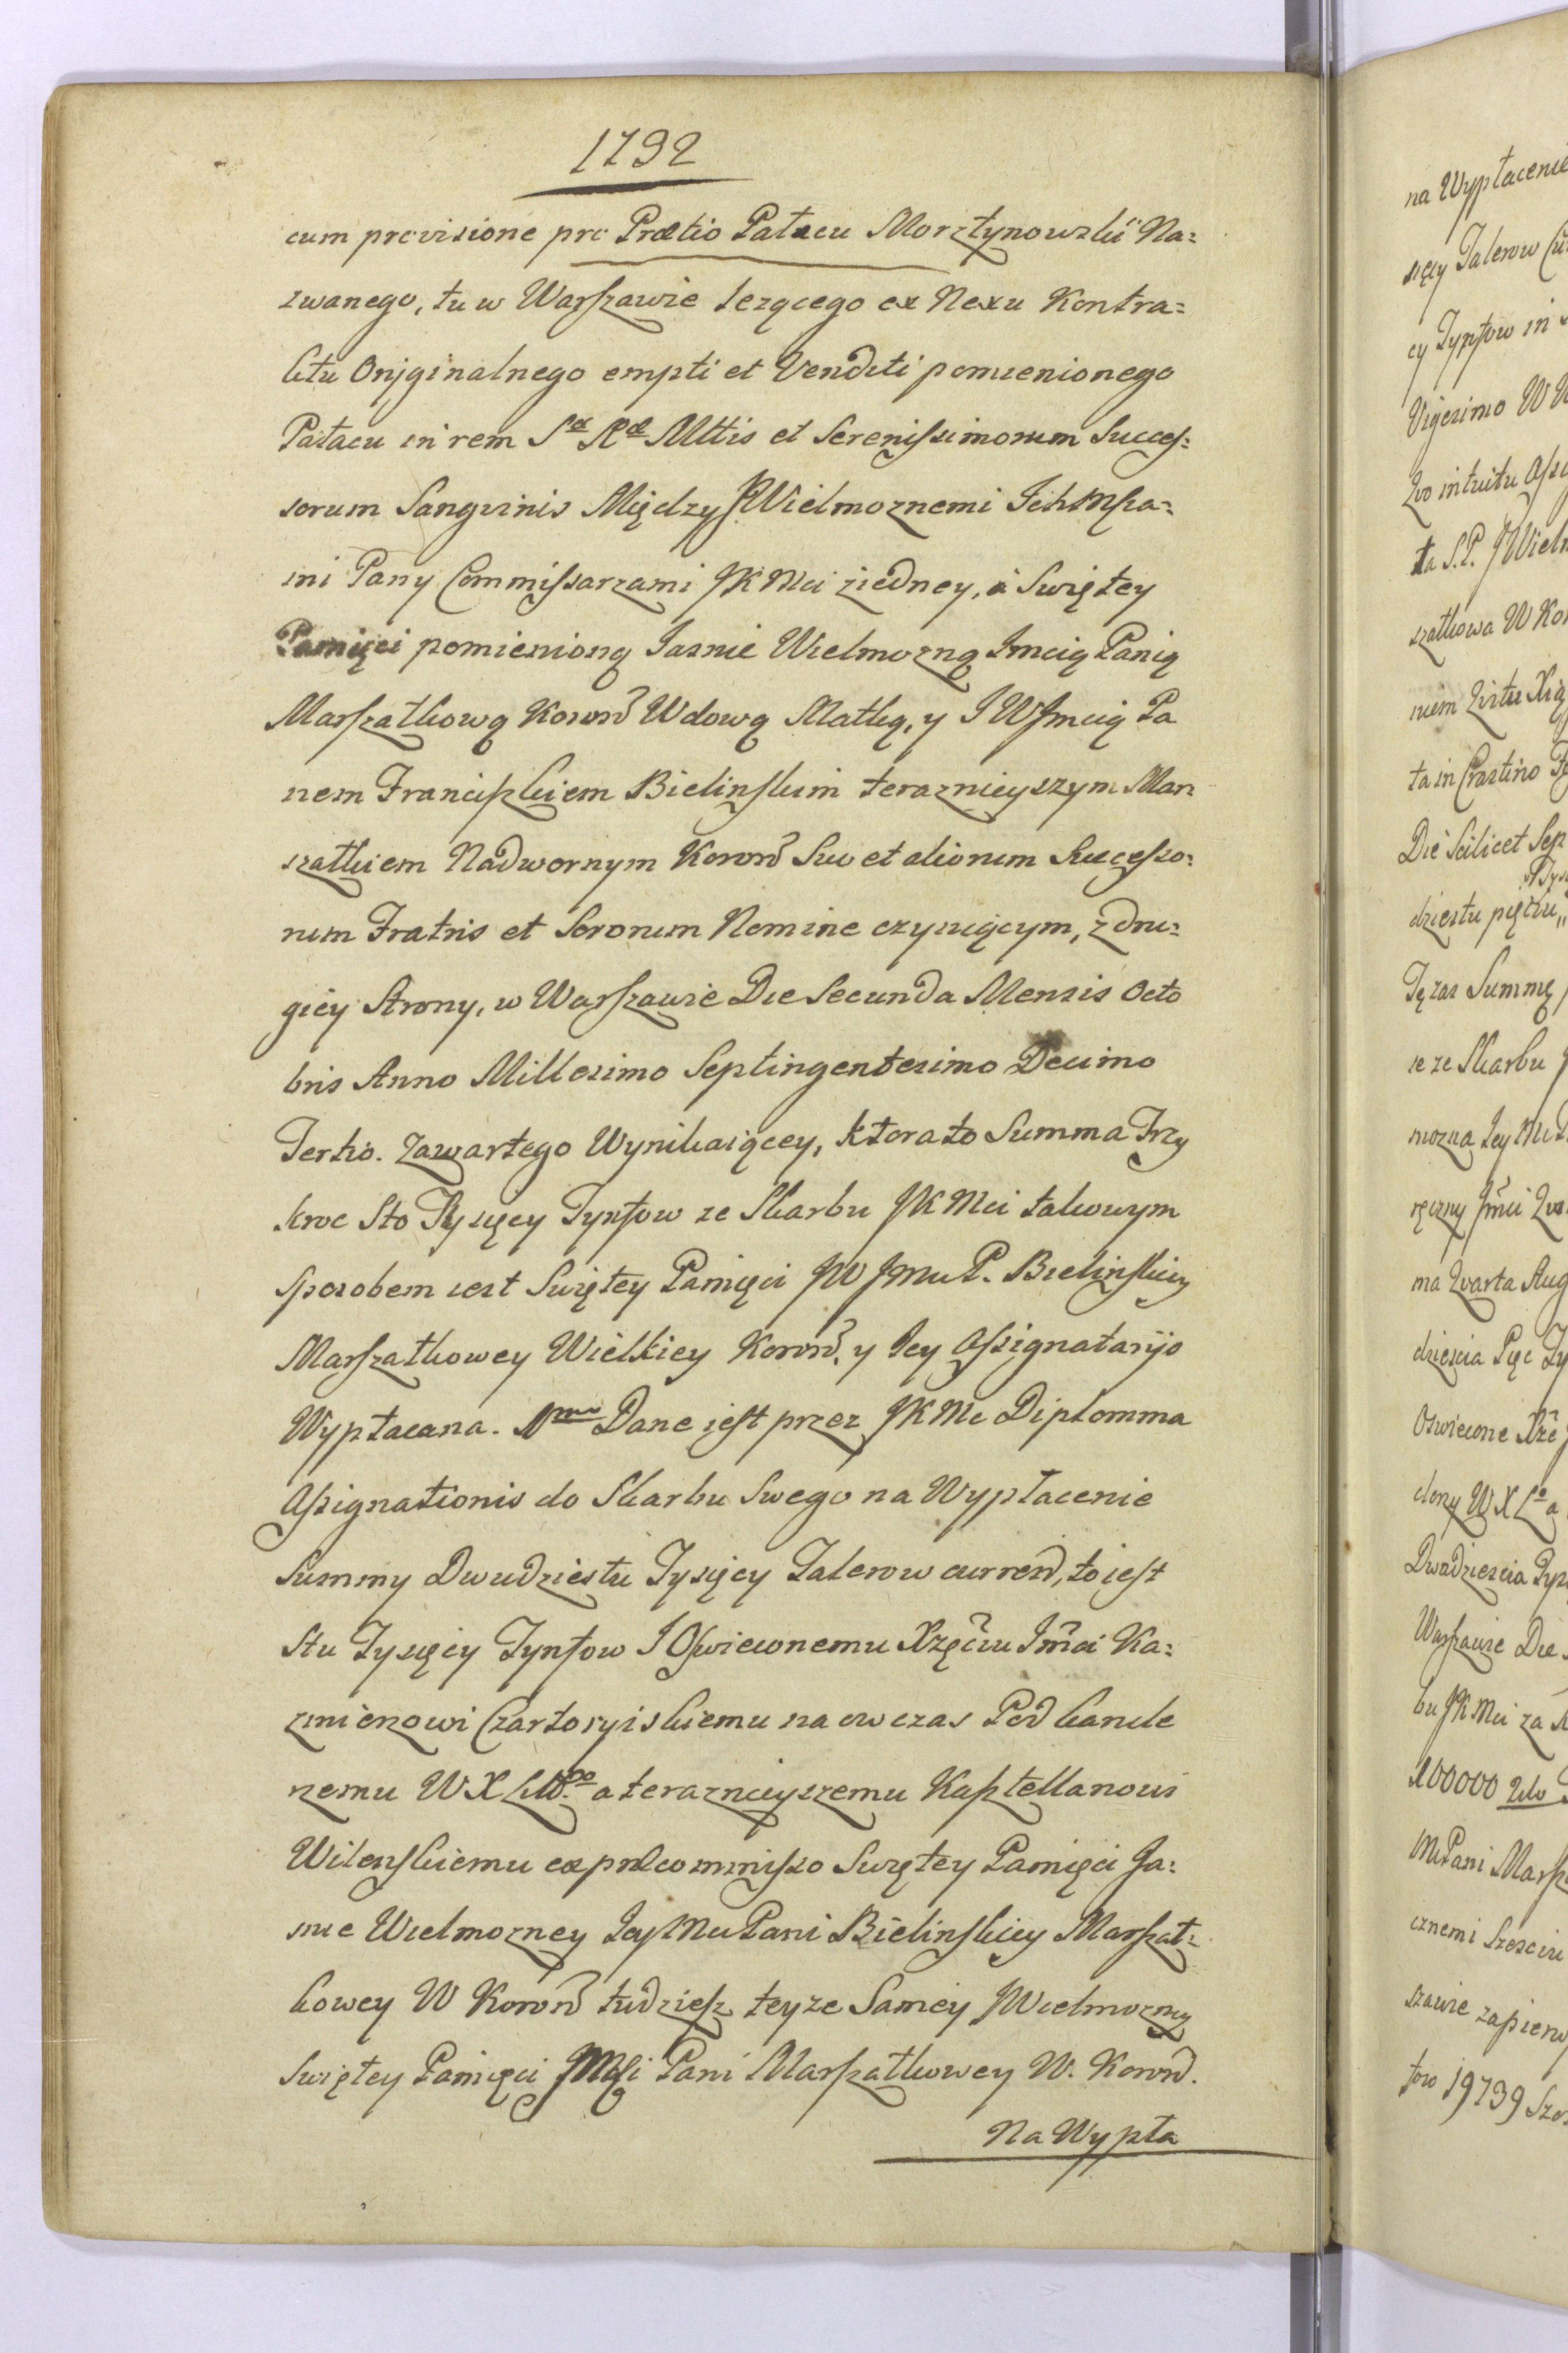 1732
cum provisione pro Prætio Pałacu Morsztynowski Na=
zwanego, tu w Warszawie lezącego ex Nexu Kontra=
ktu Oryginalnego empti et Venditi pomienionego
Pałacu in rem Sæ Ræ Mttis et Serenissimorum Succes=
sorum Sangvinis Między JWielmoznemi Ich Mścia=
mi Pany Commissarzami JKMci ziedney, a Swiętey
Pamięci pomienioną Jasnie Wielmozną Jmcią Panią
Marszałkową Koron Wdową Matką, y JWJmcią Pa
nem Franciszkiem Bielinskim teraznieyszym Mar
szałkiem Nadwornym Koron Suo et aliorum Successo=
rum Fratris et Sororum Nomine czyniącym, z dru=
giey Strony, w Warszawie Die Secunda Mensis Octo
bris Anno Millesimo Septingentesimo Decimo
Tertio. Zawartego Wynikaiącey, ktora to Summa Trzy
kroc Sto Tysięcy Tynfow ze Skarbu JKMci takowym
Sposobem iest Swiętey Pamięci JW JMci P. Bielinskiey
Marszałkowey Wielkiey Koron, y Jey Assignatarijs
Wypłacana. 1mo Dane iest przez JKMc Diplomma
Assignationis do Skarbu Swego na Wypłacenie
Summy Dwudziestu Tysięcy Talerow curren, to iest
Stu Tysięcy Tynfow J Oswieconemu Xzęciu Jmci Ka=
zmierzowi Czartoryiskiemu na ow czas Pod kancle
rzemu WXLitto a teraznieyszemu Kasztellanowi
Wilenskiemu ex præcommisso Swiętey Pamięci Ja=
snie Wielmozney Jey Mci Pani Bielinskiey Marszał=
kowey W Koron tudziesz teyze Samey JWielmozney
Swiętey Pamięci JMści Pani Marszałkowey W. Koron.
Na Wypła
na Wypłacenie
sięcy Talerow
cy Tynfow in
Vigesimo
2do intuitu
ta S.P. JWielm
szałkowa W Kor
ta in Crastino
Die Scilicet Sep
dziestu pięciu
Tę zas Summę
se ze Skarbu
mozna Jey Mc
ręczny Jmci
ma Qvarta Aug
dziescia Pięc Ty
Oswiecone Xze
Dwadziescia Tys
Warszawie Die
bu JKMci za
100000
MciPani Marsz
cznemi Szesciu
szawie zapierw
fow 19739